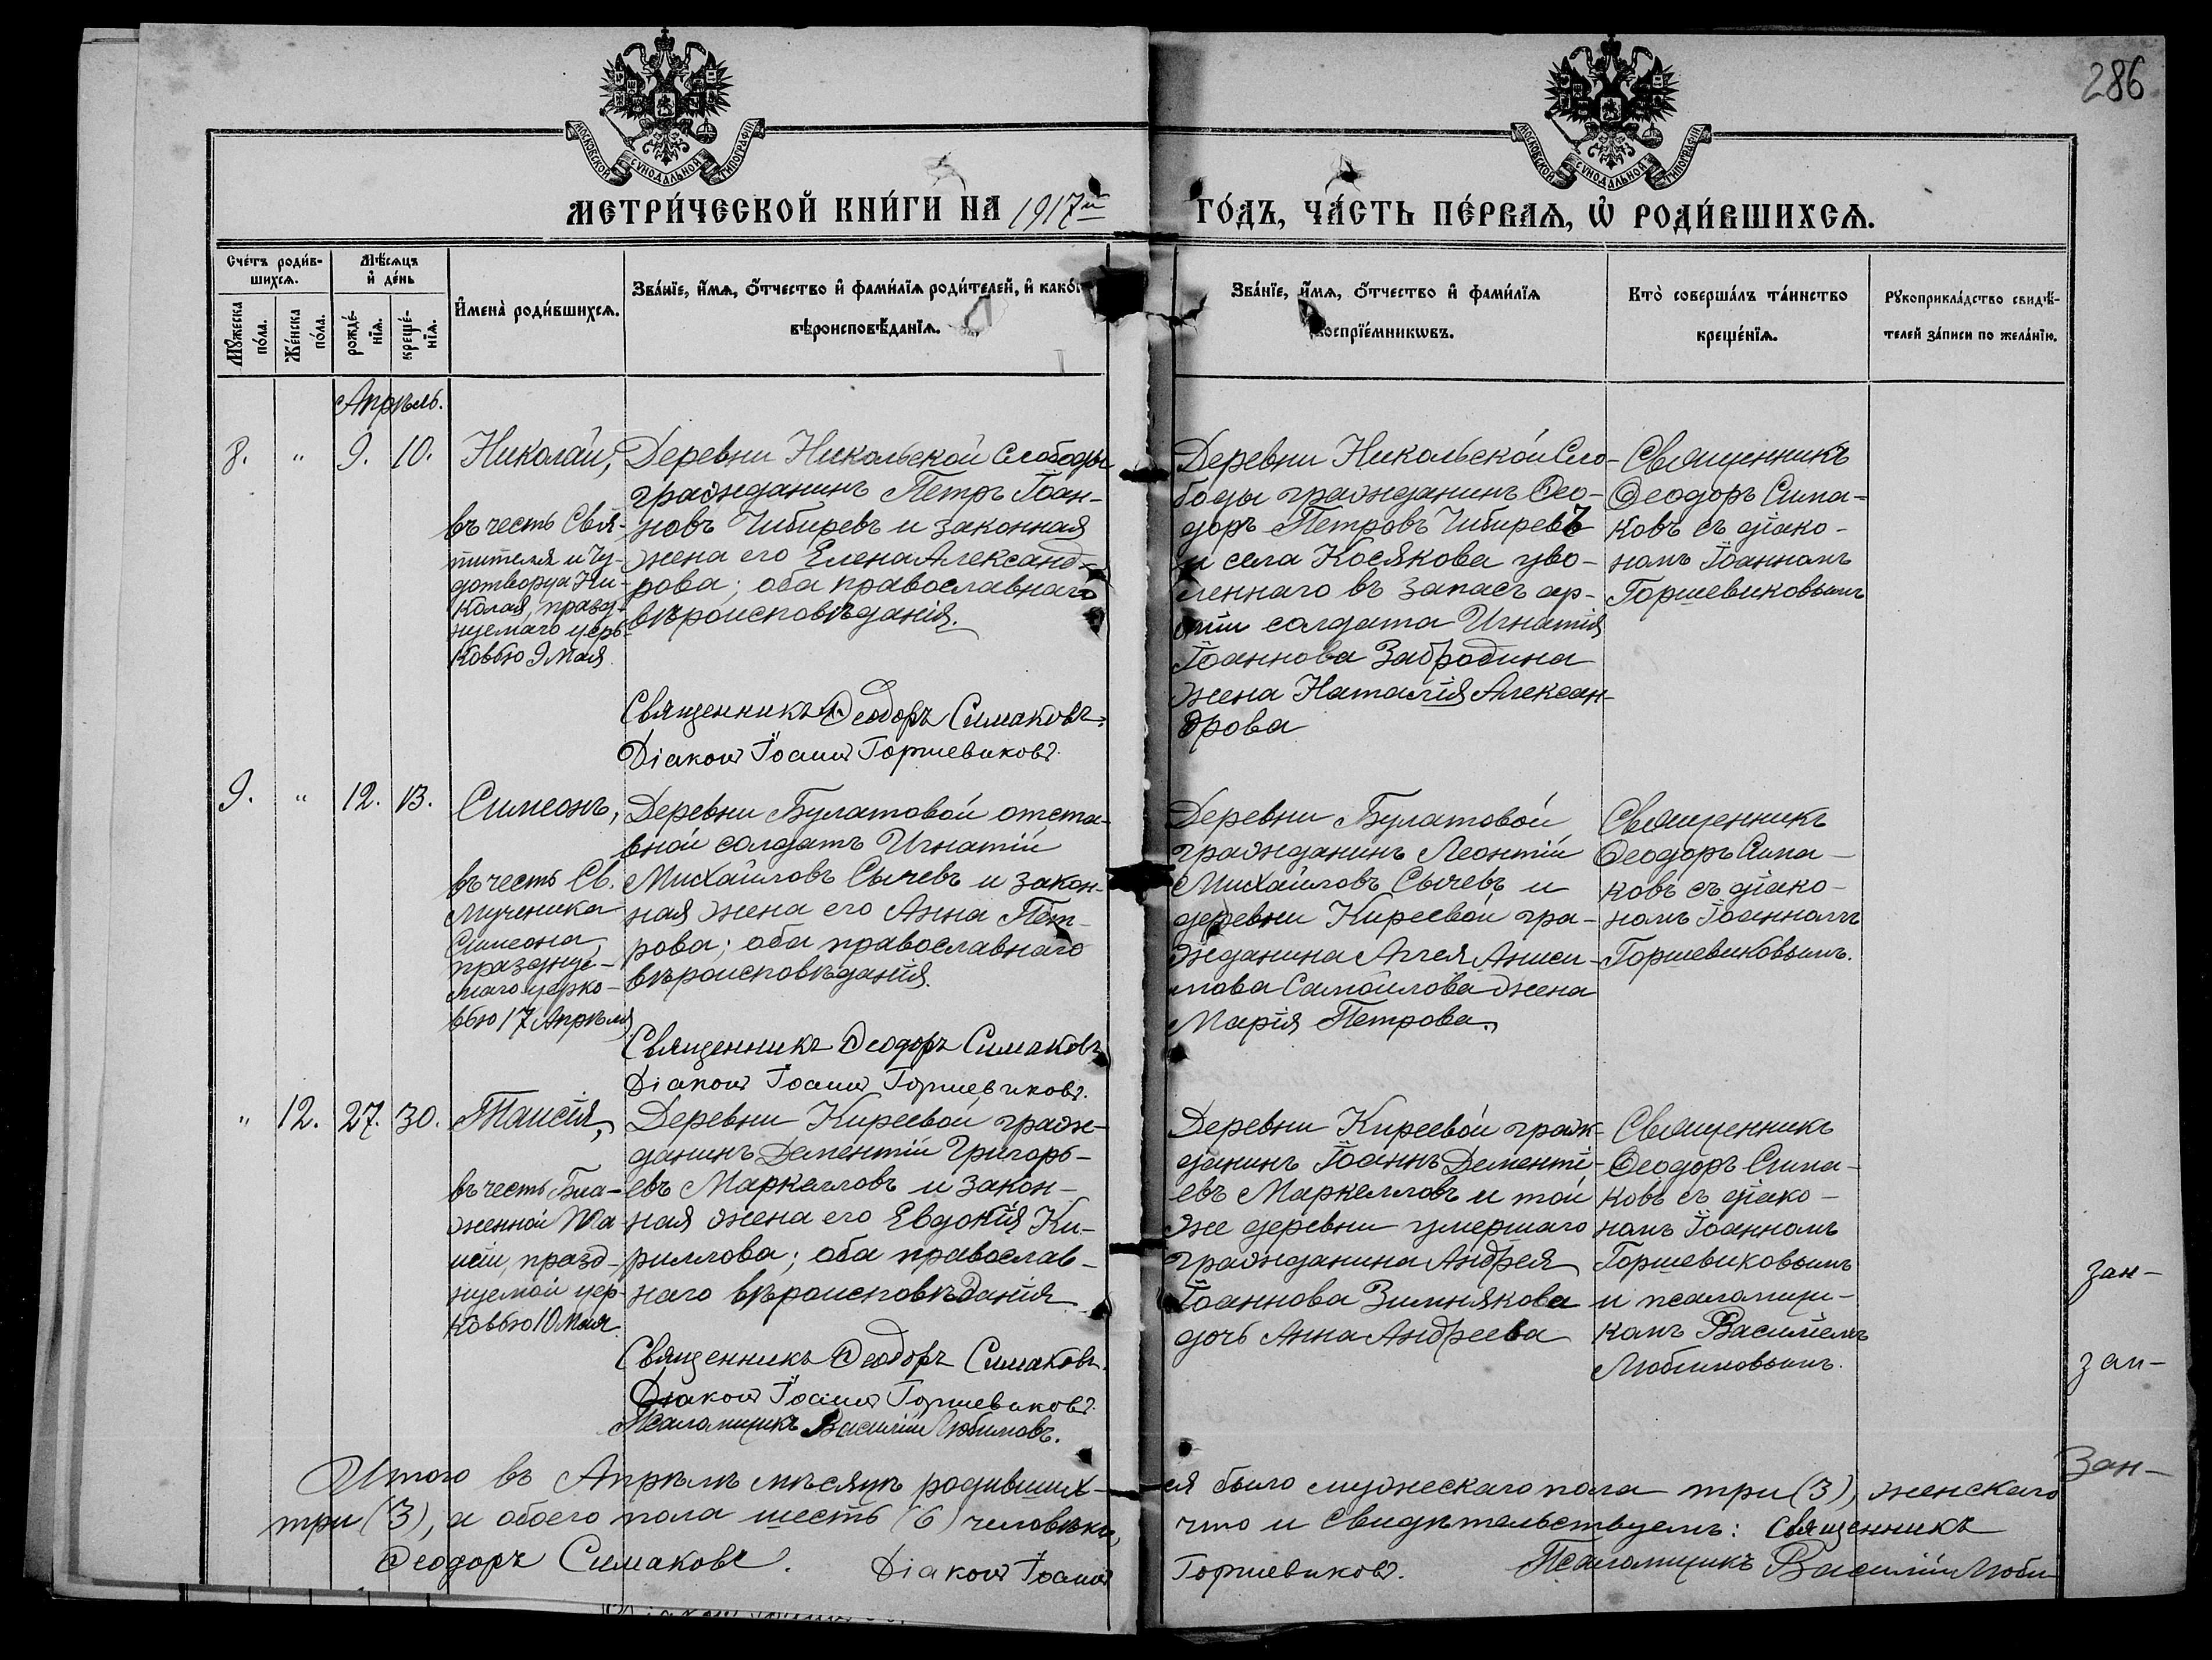 286
МОСКОВСКОЙ СѴНОДАЛЬНОЙ ТИПОГРАФІИ
МОСКОВСКОЙ СѴНОДАЛЬНОЙ ТИПОГРАФІИ
МЕТРИ́ЧЕСКОЙ КНИ́ГИ НА 1917й ГО́ДЪ, ЧА́СТЬ ПЕ́РВАЯ, Ѡ҆ РОДИ́ВШИХСЯ.
Сче́тъ роди́в-
шихся.
Мѣ́сяцъ
и҆ де́нь
Мꙋ́жеска
по́ла.
Же́нска
по́ла.
рожде́-
нїя.
креще́-
нїя.
И҆мена̀ роди́вшихся.
Зва́нїе, и҆́мя, ѻ҆́тчество и҆ фами́лїя роди́телей, и҆ како́й
вѣроисповѣ́данїя.
Зва́нїе, и҆́мя, ѻ҆́тчество и҆ фами́лїя
воспрїе́мникѡвъ.
Кто̀ соверша́лъ та́инство
креще́нїя.
Рꙋкоприкла́дство свидѣ́-
телей за́писи по жела́нїю.
Апрѣль.
8. " 9. 10. Николай,
въ честь Свя-
тителя и Чу-
дотворца Ни-
колая, празд-
нуемаго цер-
ковью 9 Мая
Деревни Никольской Слободы
гражданинъ Петръ Іоан-
новъ Чибиревъ и законная
жена его Елена Александ-
рова; оба православнаго
вѣроисповѣданія.
Священникъ Ѳеодоръ Симаковъ.
Діаконъ Іоаннъ Горшевиковъ.
Деревни Никольской Сло-
боды гражданинъ Ѳео-
доръ Петровъ Чибиревъ
и села Косякова уво-
леннаго въ запасъ ар-
міи солдата Игнатія
Іоаннова Забродина
жена Наталія Алексан-
дрова
Священникъ
Ѳеодоръ Сима-
ковъ съ діако-
номъ Іоанномъ
Горшевиковымъ
9. " 12. 13. Симеонъ,
въ честь Св.
Мученика
Симеона,
празднуе-
маго церко-
вью 17 Апрѣля
Деревни Булатовой отста-
вной солдатъ Игнатій
Михайловъ Сычевъ и закон-
ная жена его Анна Пет-
рова; оба православнаго
вѣроисповѣданія.
Священникъ Ѳеодоръ Симаковъ
Діаконъ Іоаннъ Горшевиковъ.
Деревни Булатовой
гражданинъ Леонтій
Михайловъ Сычевъ и
деревни Киреевой гра-
жданина Аггея Аниси-
мова Самойлова жена
Марія Петрова.
Священникъ
Ѳеодоръ Сима-
ковъ съ діако-
номъ Іоанномъ
Горшевиковымъ.
" 12. 27. 30. Таисія,
въ честь Бла-
женной Та-
исіи, празд-
нуемой цер-
ковью 10 Мая.
Деревни Киреевой граж-
данинъ Дементій Григорь-
евъ Маркелловъ и закон-
ная жена его Евдокія Ки-
риллова; оба православ-
наго вѣроисповѣданія
Священникъ Ѳеодоръ Симаковъ.
Діаконъ Іоаннъ Горшевиковъ.
Псаломщикъ Василій Любимовъ.
Деревни Киреевой граж-
данинъ Іоаннъ Дементі-
евъ Маркелловъ и той
же деревни умершаго
гражданина Андрея
Іоаннова Зимнякова
дочь Анна Андреева
Священникъ
Ѳеодоръ Сима-
ковъ съ діако-
номъ Іоанномъ
Горшевиковымъ
и псаломщи-
комъ Василіемъ
Любимовымъ.
Итого въ Апрѣлѣ мѣсяцѣ родивших-ся было мужескаго пола три (3), женскаго
три (3), а обоего пола шесть (6) человѣкъ, что и свидѣтельствуемъ: Священникъ
Ѳеодоръ Симаковъ. Діаконъ Іоаннъ Горшевиковъ. Псаломщикъ Василій Люби-